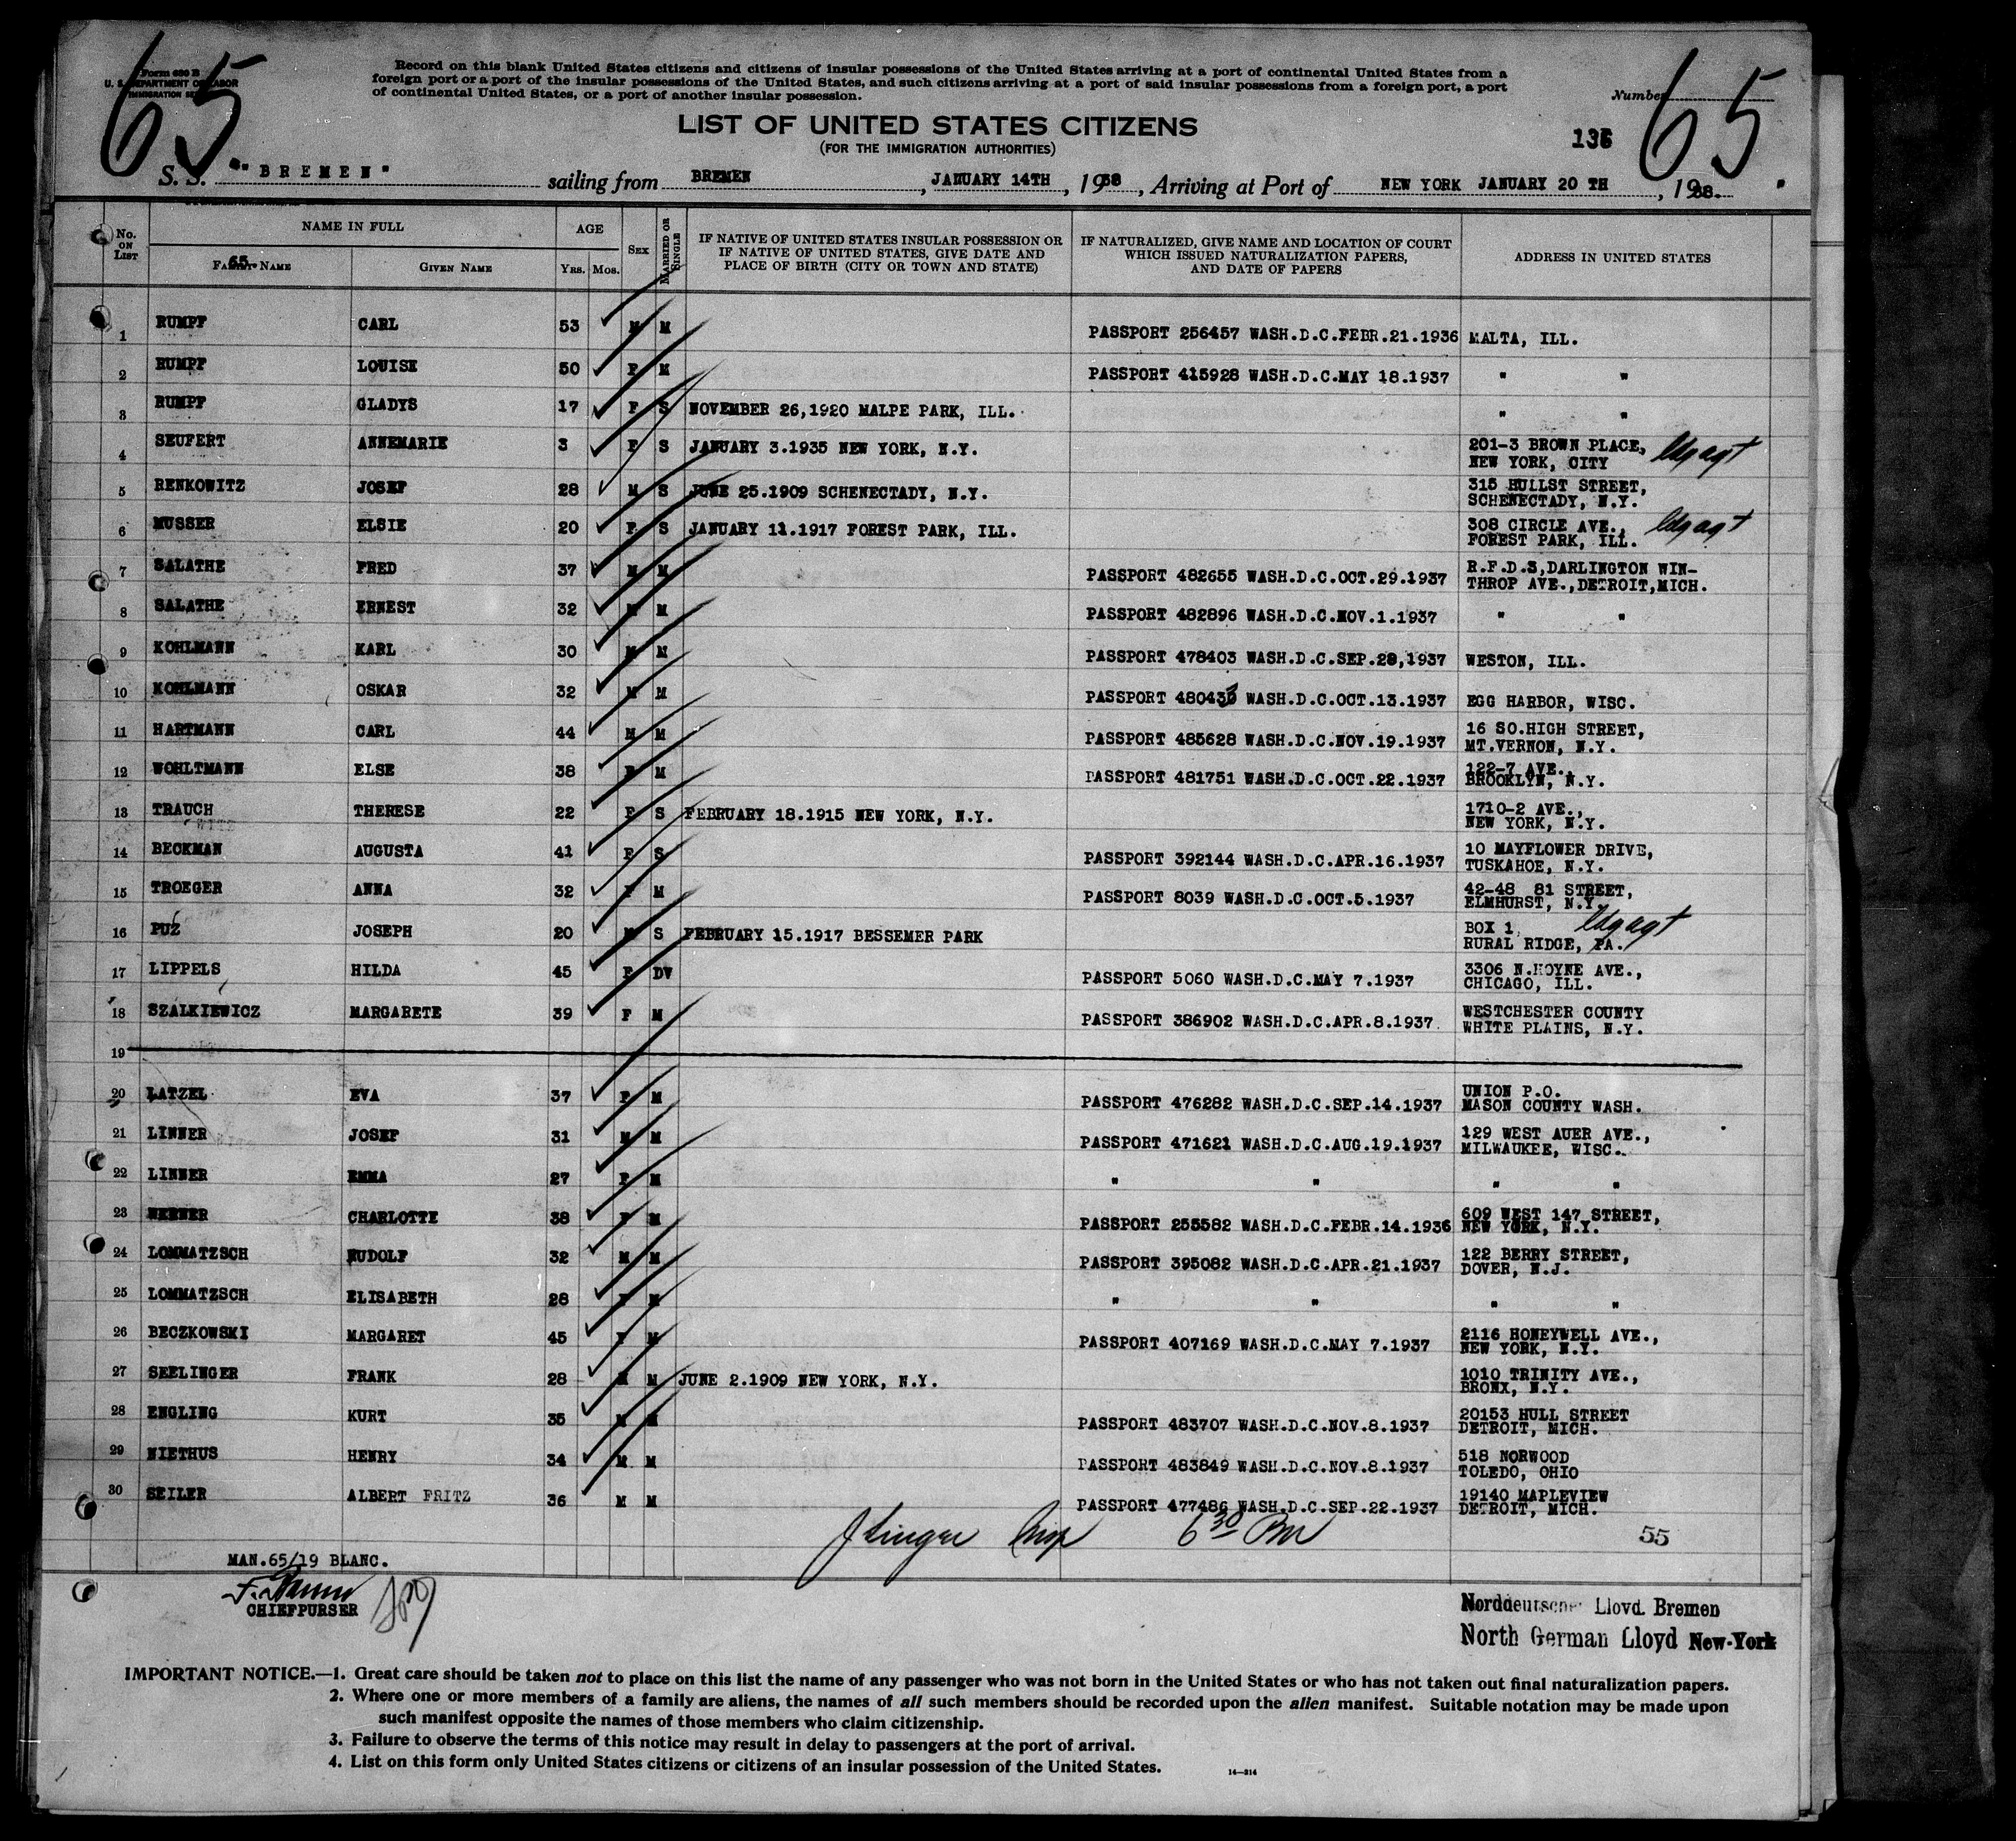 65
65.
Form 630 B
U. S. DEPARTMENT OF LABOR
IMMIGRATION SERVICE
Record on this blank United States citizens and citizens of insular possessions of the United States arriving at a port of continental United States from a
foreign port or a port of the insular possessions of the United States, and such citizens arriving at a port of said insular possessions from a foreign port, a port
of continental United States, or a port of another insular possession.
Number
LIST OF UNITED STATES CITIZENS
(FOR THE IMMIGRATION AUTHORITIES)
136
S. S. "BREMEN" sailing from BREMEN, JANUARY 14TH, 1938, Arriving at Port of NEW YORK JANUARY 20 TH, 1938.
No. ON LIST NAME IN FULL AGE SEX MARRIED OR SINGLE IF NATIVE OF UNITED STATES INSULAR POSSESSION OR IF NATIVE OF UNITED STATES, GIVE DATE AND PLACE OF BIRTH (CITY OR TOWN AND STATE) IF NATURALIZED, GIVE NAME AND LOCATION OF COURT WHICH ISSUED NATURALIZATION PAPERS, AND DATE OF PAPERS ADDRESS IN UNITED STATES
65. FAMILY NAME GIVEN NAME YRS. MOS.
1 RUMPF CARL 53 M M PASSPORT 256457 WASH.D.C.FEBR.21.1936 MALTA, ILL.
2 RUMPF LOUISE 50 F M PASSPORT 415928 WASH.D.C.MAY 18.1937 " "
3 RUMPF GLADYS 17 F S NOVEMBER 26,1920 MALPE PARK, ILL. " "
4 SEUFERT ANNEMARIE 3 F S JANUARY 3.1935 NEW YORK, N.Y. 201-3 BROWN PLACE,
NEW YORK, CITY
5 RENKOWITZ JOSEF 28 M S JUNE 25.1909 SCHENECTADY, N.Y. 315 HULLST STREET,
SCHENECTADY, N.Y.
6 MUSSER ELSIE 20 F S JANUARY 11.1917 FOREST PARK, ILL. 308 CIRCLE AVE.,
FOREST PARK, ILL.
7 SALATHE FRED 37 M M PASSPORT 482655 WASH.D.C.OCT.29.1937 R.F.D.3,DARLINGTON WIN-
THROP AVE.,DETROIT,MICH.
8 SALATHE ERNEST 32 M M PASSPORT 482896 WASH.D.C.NOV.1.1937 " "
9 KOHLMANN KARL 30 M M PASSPORT 478403 WASH.D.C.SEP.28,1937 WESTON, ILL.
10 KOHLMANN OSKAR 32 M M PASSPORT 480433 WASH.D.C.OCT.13.1937 EGG HARBOR, WISC.
11 HARTMANN CARL 44 M M PASSPORT 485628 WASH.D.C.NOV.19.1937 16 SO.HIGH STREET,
MT.VERNON, N.Y.
12 WOHLTMANN ELSE 38 F M PASSPORT 481751 WASH.D.C.OCT.22.1937 122-7 AVE.
BROOKLYN, N.Y.
13 TRAUCH THERESE 22 F S FEBRUARY 18.1915 NEW YORK, N.Y. 1710-2 AVE.,
NEW YORK, N.Y.
14 BECKMAN AUGUSTA 41 F S PASSPORT 392144 WASH.D.C.APR.16.1937 10 MAYFLOWER DRIVE,
TUSKAHOE, N.Y.
15 TROEGER ANNA 32 F M PASSPORT 8039 WASH.D.C.OCT.5.1937 42-48 81 STREET,
ELMHURST, N.Y.
16 PUZ JOSEPH 20 M S FEBRUARY 15.1917 BESSEMER PARK BOX 1
RURAL RIDGE, PA.
17 LIPPELS HILDA 45 F DV PASSPORT 5060 WASH.D.C.MAY 7.1937 3306 N.HOYNE AVE.,
CHICAGO, ILL.
18 SZALKIEWICZ MARGARETE 39 F M PASSPORT 386902 WASH.D.C.APR.8.1937 WESTCHESTER COUNTY
WHITE PLAINS, N.Y.
19
20 LATZEL EVA 37 F M PASSPORT 476282 WASH.D.C.SEP.14.1937 UNION P.O.
MASON COUNTY WASH.
21 LINNER JOSEF 31 M M PASSPORT 471621 WASH.D.C.AUG.19.1937 129 WEST AUER AVE.,
MILWAUKEE, WISC.
22 LINNER EMMA 27 F M " " " "
23 WERNER CHARLOTTE 38 F M PASSPORT 255582 WASH.D.C.FEBR.14.1936 609 WEST 147 STREET,
NEW YORK, N.Y.
24 LOMMATZSCH RUDOLF 32 M M PASSPORT 395082 WASH.D.C.APR.21.1937 122 BERRY STREET,
DOVER, N.J.
25 LOMMATZSCH ELISABETH 28 F M " " " "
26 BECZKOWSKI MARGARET 45 F M PASSPORT 407169 WASH.D.C.MAY 7.1937 2116 HONEYWELL AVE.,
NEW YORK, N.Y.
27 SEELINGER FRANK 28 M M JUNE 2.1909 NEW YORK, N.Y. 1010 TRINITY AVE.,
BRONX, N.Y.
28 ENGLING KURT 35 M M PASSPORT 483707 WASH.D.C.NOV.8.1937 20153 HULL STREET
DETROIT, MICH.
29 NIETHUS HENRY 34 M M PASSPORT 483849 WASH.D.C.NOV.8.1937 518 NORWOOD
TOLEDO, OHIO
30 SEILER ALBERT FRITZ 36 M M PASSPORT 477486 WASH.D.C.SEP.22.1937 19140 MAPLEVIEW
DETROIT, MICH.
Insp 6 30 PM
55
MAN.65/19 BLANC.
CHIEFPURSER
Norddeutscher Lloyd Bremen
North German Lloyd New-York
IMPORTANT NOTICE.—1. Great care should be taken not to place on this list the name of any passenger who was not born in the United States or who has not taken out final naturalization papers.
2. Where one or more members of a family are aliens, the names of all such members should be recorded upon the alien manifest. Suitable notation may be made upon
such manifest opposite the names of those members who claim citizenship.
3. Failure to observe the terms of this notice may result in delay to passengers at the port of arrival.
4. List on this form only United States citizens or citizens of an insular possession of the United States.
14—214